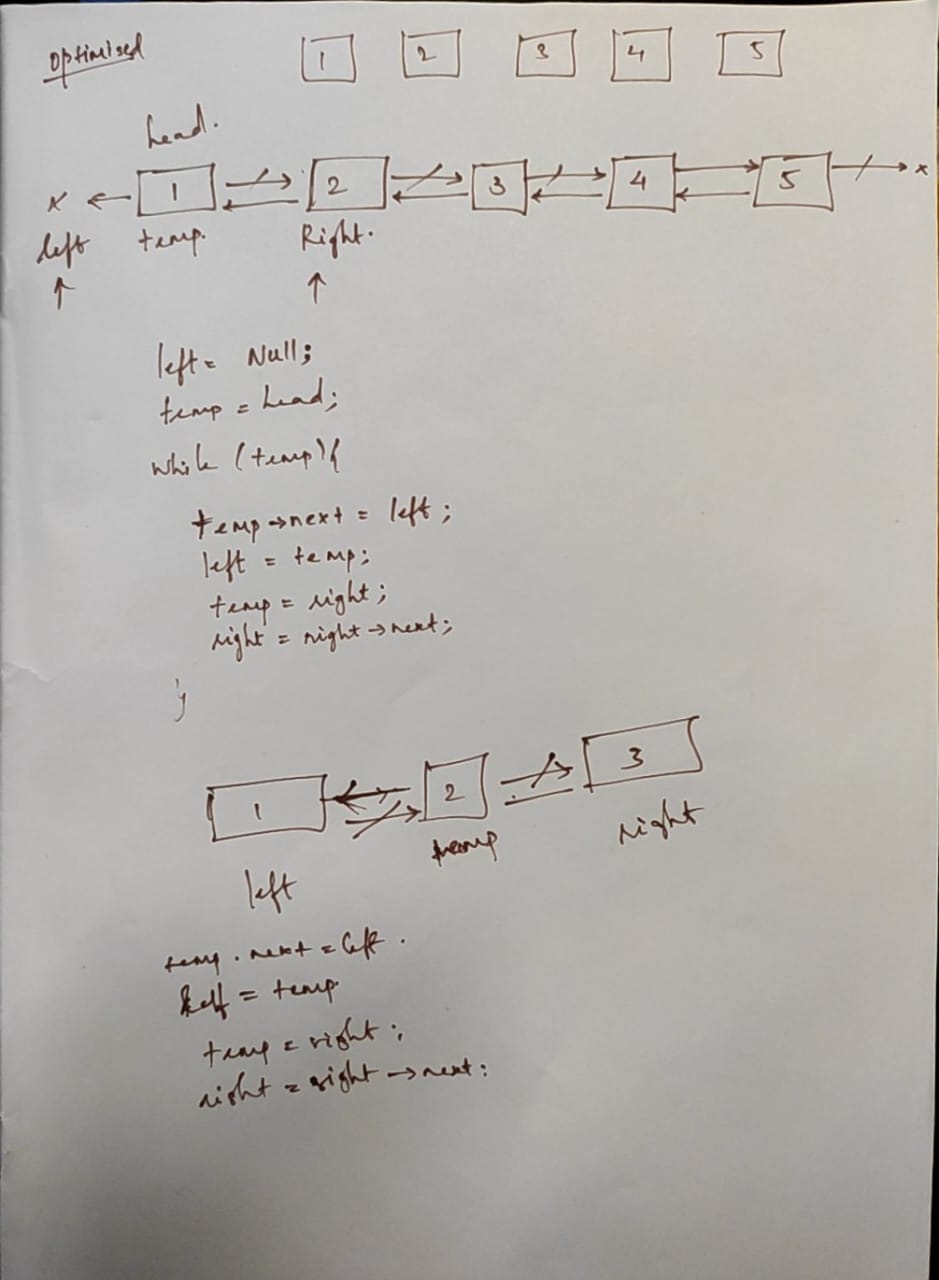 optimised 1 2 3 4 5
head.
x 1 2 3 4 5 x
left temp. Right.
left = Null;
temp = head;
while (temp){
temp→next = left;
left = temp;
temp = right;
right = right→next;
}
1 2 3
left temp right
temp . next = left .
left = temp
temp = right ;
right = right → next ;